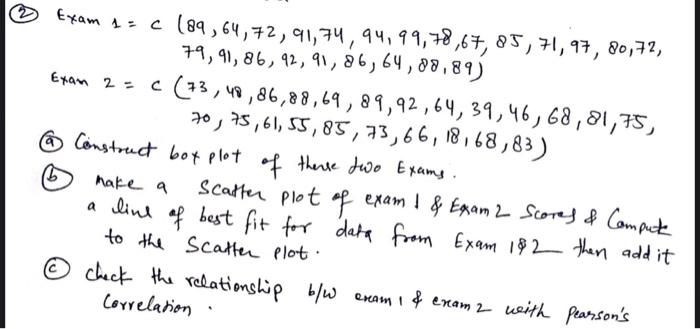 ② Exam 1 = c (89, 64, 72, 91, 74, 94, 99, 78, 67, 85, 71, 97, 80, 72,
79, 91, 86, 92, 91, 86, 64, 88, 89)
Exam 2 = c (73, 48, 86, 88, 69, 89, 92, 64, 39, 46, 68, 81, 75,
70, 75, 61, 55, 85, 73, 66, 18, 68, 83)
ⓐ Construct box plot of these two Exams.
ⓑ make a scatter plot of exam 1 & Exam 2 scores & Compute
a line of best fit for data from Exam 1 & 2 then add it
to the scatter plot.
ⓒ check the relationship b/w exam 1 & exam 2 with pearson's
correlation.